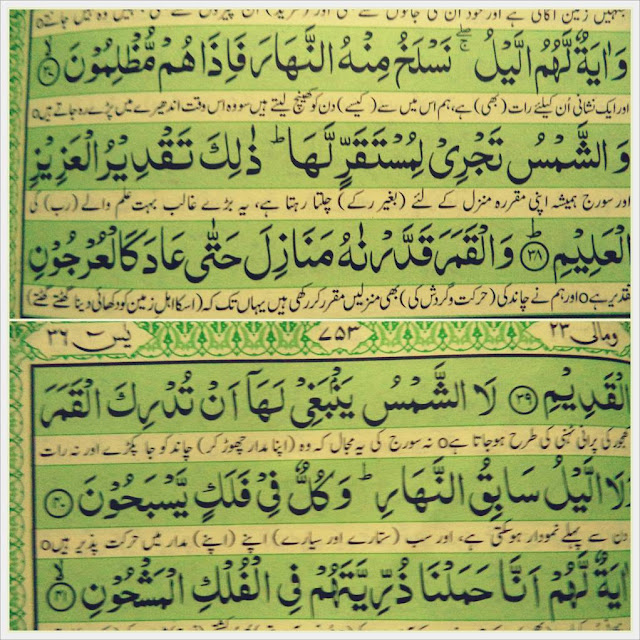 جنہیں زمین اگاتی ہے اور خود ان کی جانوں سے بھی اور (مزید) ان چیزوں سے بھی جنہیں وہ نہیں جانتے
وَاٰيَةٌ لَّهُمُ الَّيْلُ ۖۚ نَسْلَخُ مِنْهُ النَّهَارَ فَاِذَا هُمْ مُّظْلِمُوْنَ ۙ﴿۳۷﴾
اور ایک نشانی اُن کیلئے رات (بھی) ہے، ہم اس میں سے (کیسے) دن کو کھینچ لیتے ہیں سو وہ اس وقت اندھیرے میں پڑے رہ جاتے ہیں o
وَالشَّمْسُ تَجْرِيْ لِمُسْتَقَرٍّ لَّهَا ؕ ذٰلِكَ تَقْدِيْرُ الْعَزِيْزِ
اور سورج ہمیشہ اپنی مقررہ منزل کے لئے (بغیر رکے) چلتا رہتا ہے، یہ بڑے غالب بہت علم والے (رب) کی
الْعَلِيْمِ ؕ﴿۳۸﴾ وَالْقَمَرَ قَدَّرْنٰهُ مَنَازِلَ حَتّٰى عَادَ كَالْعُرْجُوْنِ
تقدیر ہے o اور ہم نے چاند کی (حرکت و گردش کی) بھی منزلیں مقرر کر رکھی ہیں یہاں تک کہ (اسکا اہلِ زمین کو دکھائی دینا گھٹتے گھٹتے)
ومالی ۲۳ ۷۵۳ یٰسٓ ۳۶
الْقَدِيْمِ ﴿۳۹﴾ لَا الشَّمْسُ يَنْۢبَغِيْ لَهَآ اَنْ تُدْرِكَ الْقَمَرَ
کھجور کی پرانی ٹہنی کی طرح ہو جاتا ہے o نہ سورج کی یہ مجال کہ وہ (اپنا مدار چھوڑ کر) چاند کو جا پکڑے اور نہ رات
وَلَا الَّيْلُ سَابِقُ النَّهَارِ ؕ وَكُلٌّ فِيْ فَلَكٍ يَّسْبَحُوْنَ ﴿۴۰﴾
دن سے پہلے نمودار ہو سکتی ہے، اور سب (ستارے اور سیارے) اپنے (اپنے) مدار میں حرکت پذیر ہیں o
اٰيَةٌ لَّهُمْ اَنَّا حَمَلْنَا ذُرِّيَّتَهُمْ فِي الْفُلْكِ الْمَشْحُوْنِ ۙ﴿۴۱﴾